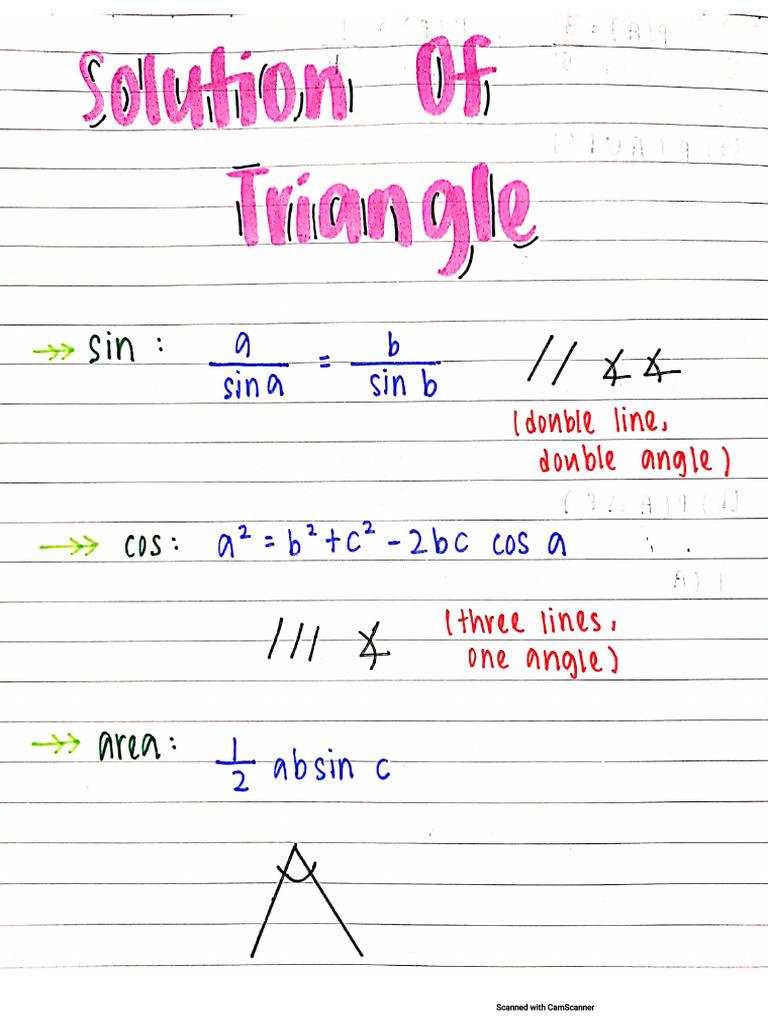 Solution Of
Triangle
sin : a/sin a = b/sin b
(double line,
double angle)
cos: a² = b² + c² - 2bc cos a
(three lines,
one angle)
area: 1/2 absin c
Scanned with CamScanner